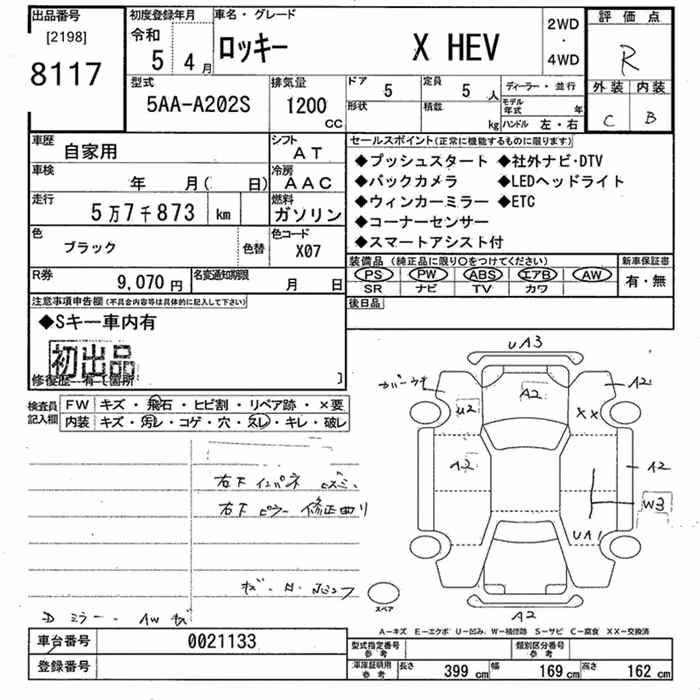 出品番号
[2198]
8117
初度登録年月
令和
5 4月
車名・グレード
ロッキー X HEV
2WD
・
4WD
評価点
R
外装 内装
C B
型式
5AA-A202S
排気量
1200
CC
ドア 5
定員 5人
ディーラー・並行
形状
積載 kg
モデル年式 年
ハンドル 左・右
車歴
自家用
シフト
AT
車検
年 月( 日)
冷房
AAC
走行
5万7千873 km
燃料
ガソリン
色
ブラック
色替
色コード
X07
R券
9,070円
名変通知期限
月 日
セールスポイント(正常に機能するものに限ります)
◆プッシュスタート ◆社外ナビ・DTV
◆バックカメラ ◆LEDヘッドライト
◆ウィンカーミラー ◆ETC
◆コーナーセンサー
◆スマートアシスト付
装備品 (純正品に限り○をつけてください)
新車保証書
PS PW ABS エアB AW
SR ナビ TV カワ
有・無
後日品
注意事項申告欄(不具合内容等は具体的に記入して下さい)
◆Sキー車内有
初出品
修復歴 有(箇所 )
検査員記入欄
FW キズ・飛石・ヒビ割・リペア跡・×要
内装 キズ・汚レ・コゲ・穴・スレ・キレ・破レ
右下インパネ
右下ピラー 修正曲り
Dミラー・AWキズ
UA3
A2
A2
U2
XX
A2
A2
W3
UA1
A2
スペア
A-キズ E-エクボ U-凹み W-補修跡 S-サビ C-腐食 XX-交換済
車台番号 0021133
登録番号
型式指定番号
参考
類別区分番号
参考
車庫証明用
参考
長さ 399cm 幅 169cm 高さ 162cm